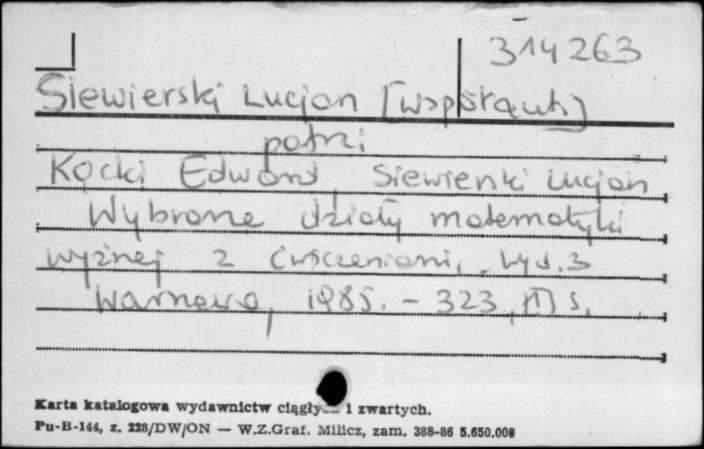 314263
Siewierski Lucjan [współaut.]
patrz:
Kącki Edward, Siewierski Lucjan
Wybrane działy matematyki
wyższej z ćwiczeniami. Wyd. 3
Warszawa, 1985. - 323, [1] s.
Karta katalogowa wydawnictw ciągłych i zwartych.
Pu-B-144, z. 228/DW/ON — W.Z.Graf. Milicz, zam. 388-86 5.650.000